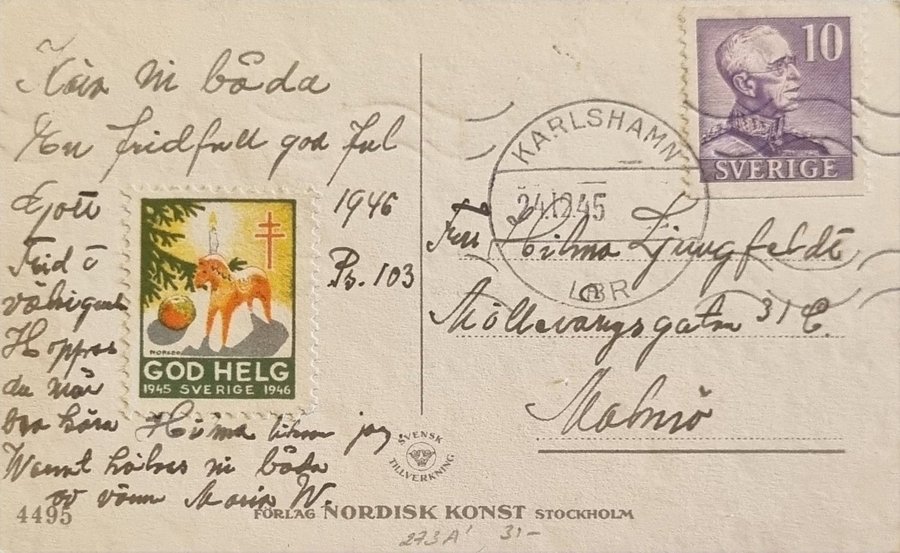 Kära ni båda
En fridfull god Jul
Gott 1946
Frid i Ps. 103
Hoppas
du mår
bra kära Hilma liksom jag
Varmt hälsas ni båda
av vänn Maria W.
GOD HELG
1945 SVERIGE 1946
4495
FÖRLAG NORDISK KONST STOCKHOLM
SVENSK
TILLVERKNING
273A' 31-
10
SVERIGE
KARLSHAMN
24.12.45
LBR
Fru Hilma Ljungfeldt
Möllevangsgatan 31 C.
Malmö